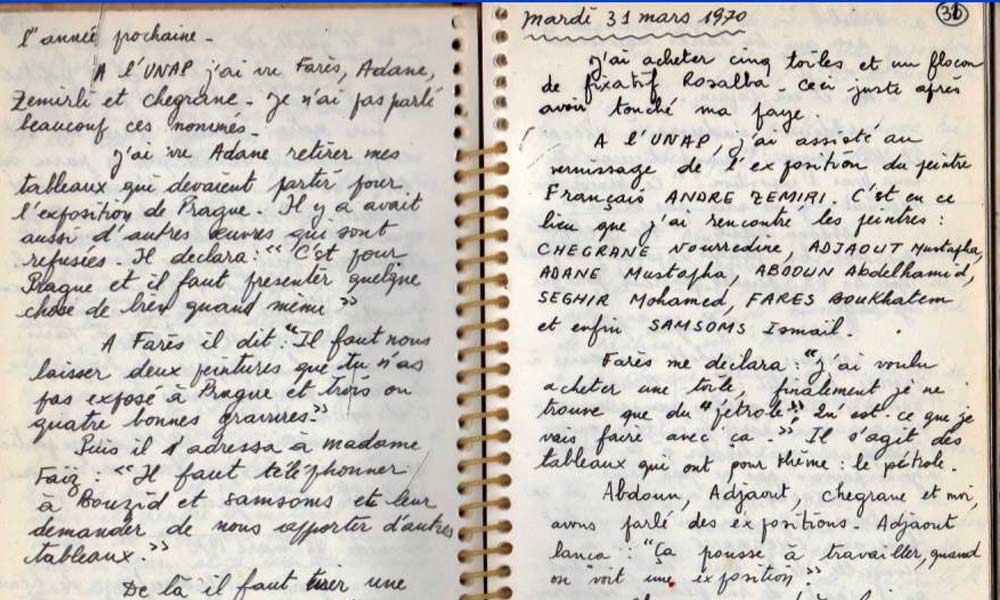 l'année prochaine -
A l'UNAP j'ai vu Farès, Adane,
Zemirli et chegrane - je n'ai pas parlé
beaucoup ces nommés -
J'ai vu Adane retirer mes
tableaux qui devaient partir pour
l'exposition de Prague. Il y a avait
aussi d'autres œuvres qui sont
refusées. Il declara : "C'est pour
Prague et il faut presenter quelque
chose de bien quand même"
A Farès il dit : "Il faut nous
laisser deux peintures que tu n'as
pas exposé à Prague et trois ou
quatre bonnes gravures."
Puis il s'adressa à madame
Faïz : "Il faut téléphonner
à Bouzid et samsoms et leur
demander de nous apporter d'autres
tableaux."
De là il faut tirer une
36
Mardi 31 mars 1970
J'ai acheter cinq toiles et un flocon
de fixatif Rosalba. ceci juste après
avoir touché ma paye
A l'UNAP, j'ai assisté au
vernissage de l'exposition du peintre
Français ANDRE ZEMIRI. C'est en ce
lieu que j'ai rencontré les peintres :
CHEGRANE Nourredine, ADJAOUT Mustapha,
ADANE Mustapha, ABDOUN Abdelhamid,
SEGHIR Mohamed, FARES BOUKhatem
et enfin SAMSOMS Ismail.
Farès me declara : "j'ai voulu
acheter une toile, finalement je ne
trouve que du "pétrole". Qu'est-ce que je
vais faire avec ça." Il s'agit des
tableaux qui ont pour thème : le pétrole.
Abdoun, Adjaout, chegrane et moi,
avons parlé des expositions. Adjaout
lança : "Ça pousse à travailler, quand
on voit une exposition".